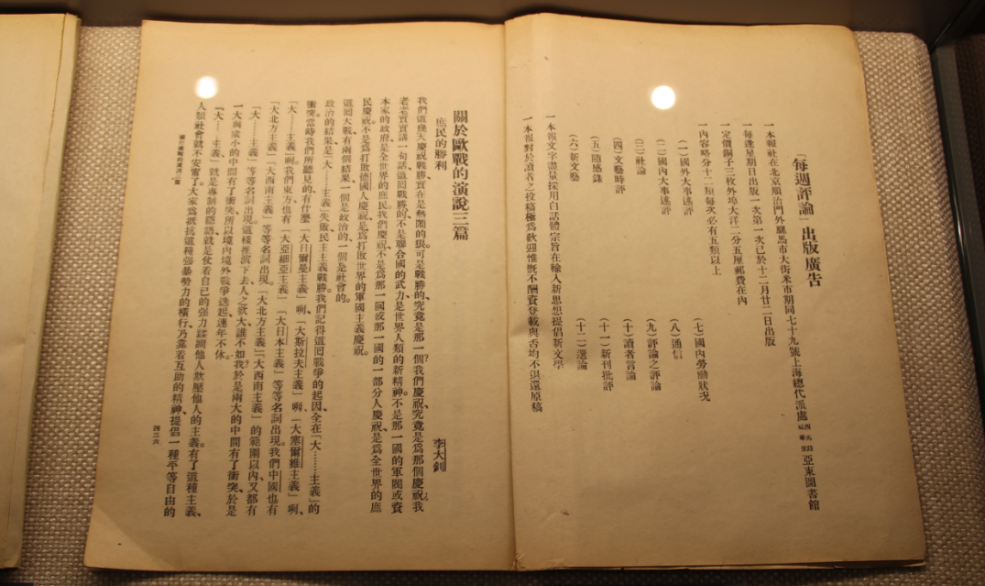 「每週評論」出版廣告
一本報社在北京順治門外騾馬市大街米市胡同七十九號上海總代派處 亞東圖書館
一每逢星期日出版一次第一次已於十二月廿二日出版
一定價銅子三枚外埠大洋二分五厘郵費在內
一內容略分十二類每次必有五類以上
(一)國外大事述評
(二)國內大事述評
(三)社論
(四)文藝時評
(五)隨感錄
(六)新文藝
(七)國內勞動狀況
(八)通信
(九)評論之評論
(十)讀者言論
(十一)新刊批評
(十二)選論
一本報文字盡量採用白話體宗旨在輸入新思想提倡新文學
一本報對於讀者之投稿極為歡迎惟概不酬資登載與否均不退還原稿
關於歐戰的演說三篇
庶民的勝利
李大釗
我們這幾天慶祝戰勝、實在是熱鬧的很。可是戰勝的、究竟是那一個?我們慶祝、究竟是爲那個慶祝?我
老老實實講一句話、這回戰勝的、不是聯合國的武力、是世界人類的新精神。不是那一國的軍閥或資
本家的政府、是全世界的庶民。我們慶祝、不是爲那一國或那一國的一部分人慶祝、是爲全世界的庶
民慶祝。不是爲打敗德國人慶祝、是爲打敗世界的軍國主義慶祝。
這回大戰、有兩個結果:一個是政治的、一個是社會的。
政治的結果、是「大……主義」失敗、民主主義戰勝。我們記得這回戰爭的起因、全在「大……主義」的
衝突。當時我們所聽見的、有什麼「大日爾曼主義」咧、「大斯拉夫主義」咧、「大塞爾維主義」咧、
「大……主義」咧。我們東方、也有「大亞細亞主義」、「大日本主義」等等名詞出現。我們中國也有
「大北方主義」、「大西南主義」等等名詞出現。「大北方主義」、「大西南主義」的範圍以內、又都有
「大……主義」等等名詞出現。這樣推演下去、人之欲大、誰不如我?於是兩大的中間有了衝突、於是
一大與衆小的中間有了衝突、所以境內境外戰爭迭起、連年不休。
「大…主義」就是專制的隱語、就是仗着自己的强力蹂躪他人欺壓他人的主義。有了這種主義、
人類社會就不安甯了。大家爲抵抗這種强暴勢力的橫行、乃靠着互助的精神、提倡一種平等自由的
四三六